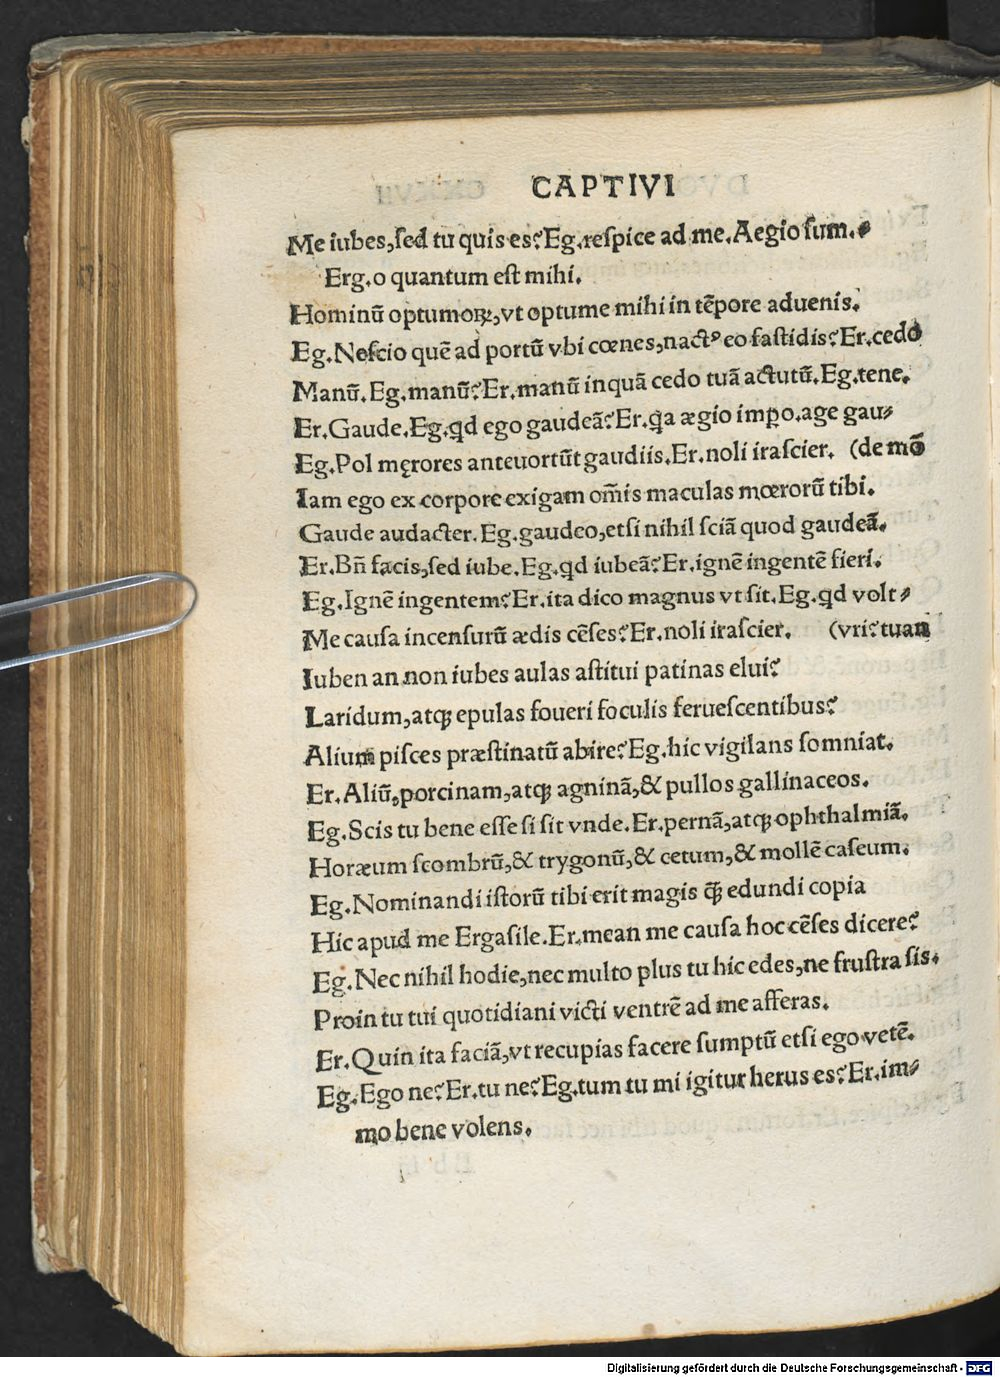 CAPTIVI
Me iubes,ſed tu quis es? Eg.reſpice ad me.Aegio ſum.
Erg.o quantum eſt mihi.
Hominũ optumoꝝ,vt optume mihi in tẽpore aduenis.
Eg.Neſcio quẽ ad portũ vbi cœnes,nactꝰ eo faſtidis? Er.cedo
Manũ.Eg.manũ? Er.manũ inquã cedo tuã actutũ.Eg.tene.
Er.Gaude.Eg.qd ego gaudeã? Er.q̃a ægio impo.age gau⸗
Eg.Pol męrores anteuortũt gaudiis.Er.noli iraſcier. (de mõ
Iam ego ex corpore exigam om̃is maculas mœrorũ tibi.
Gaude audacter. Eg.gaudeo,etſi nihil ſciã quod gaudeã.
Er.Bñ facis,ſed iube.Eg.qd iubeã? Er.ignẽ ingentẽ fieri.
Eg.Ignẽ ingentem? Er.ita dico magnus vt ſit.Eg.qd volt⸗
Me cauſa incenſurũ ædis cẽſes? Er.noli iraſcier. (vri? tuan
Iuben an non iubes aulas aſtitui patinas elui?
Laridum,atqꝫ epulas foueri foculis ferueſcentibus?
Alium piſces præſtinatũ abire? Eg.hic vigilans ſomniat.
Er.Aliũ,porcinam,atqꝫ agninã,& pullos gallinaceos.
Eg.Scis tu bene eſſe ſi ſit vnde.Er.pernã,atqꝫ ophthalmiã.
Horæum ſcombrũ,& trygonũ,& cetum,& mollẽ caſeum.
Eg.Nominandi iſtorũ tibi erit magis q̃ꝫ edundi copia
Hic apud me Ergaſile.Er.mean me cauſa hoc cẽſes dicere?
Eg.Nec nihil hodie,nec multo plus tu hic edes,ne fruſtra ſis.
Proin tu tui quotidiani victi ventrẽ ad me afferas.
Er.Quin ita faciã,vt recupias facere ſumptũ etſi ego vetẽ.
Eg.Ego ne? Er.tu ne? Eg.tum tu mi igitur herus es? Er.im⸗
mo bene volens.
Digitalisierung gefördert durch die Deutsche Forschungsgemeinschaft - DFG